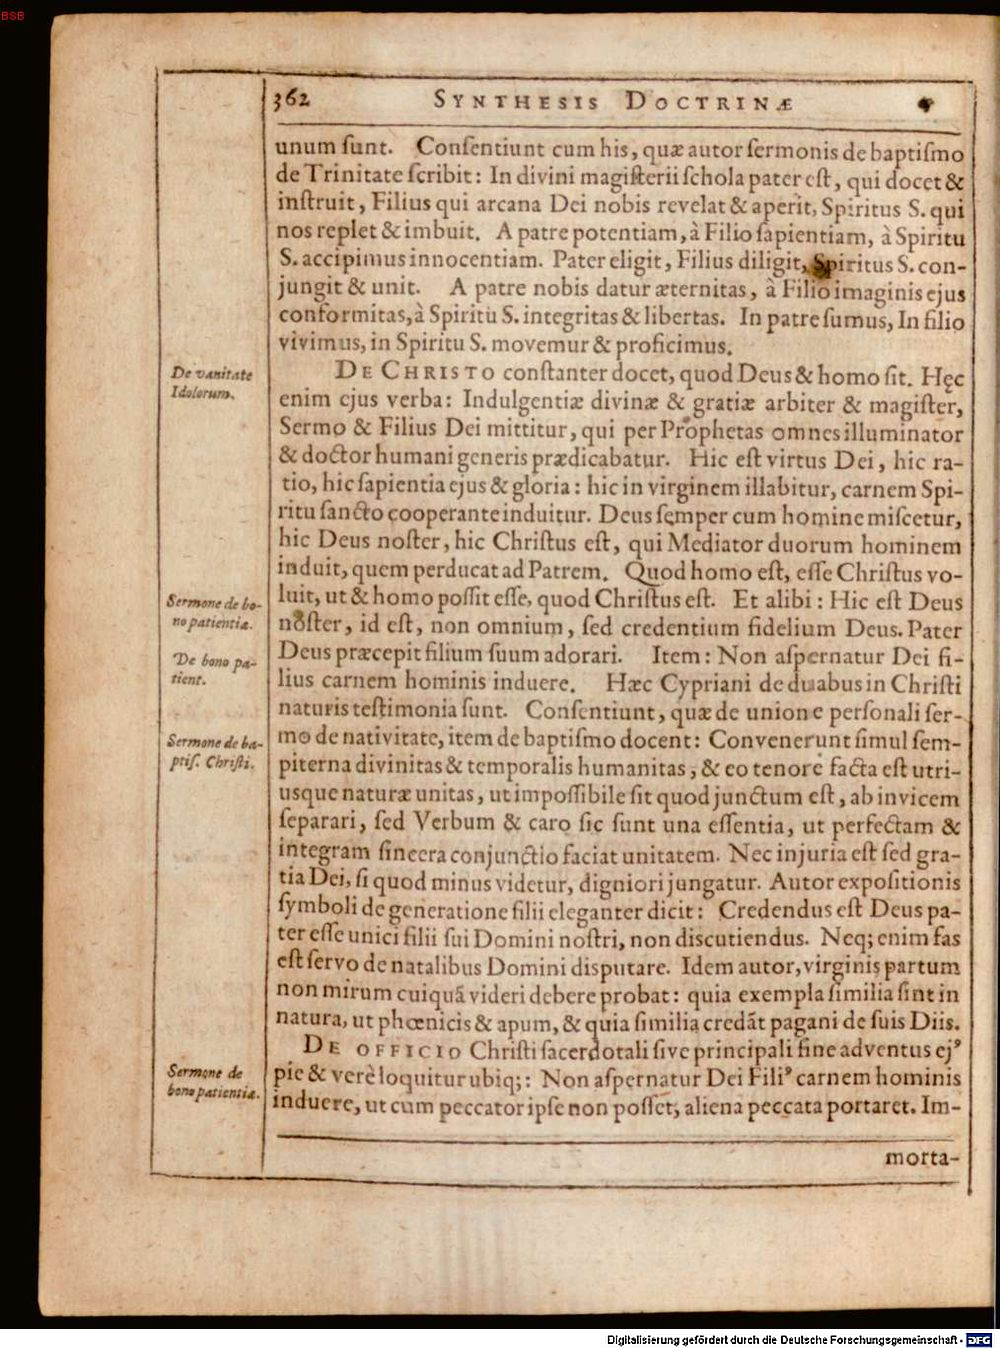 BSB
362 SYNTHESIS DOCTRINÆ
unum ſunt. Conſentiunt cum his, quæ autor ſermonis de baptiſmo
de Trinitate ſcribit: In divini magiſterii ſchola pater eſt, qui docet &
inſtruit, Filius qui arcana Dei nobis revelat & aperit, Spiritus S. qui
nos replet & imbuit. A patre potentiam, à Filio ſapientiam, à Spiritu
S. accipimus innocentiam. Pater eligit, Filius diligit, Spiritus S. con-
jungit & unit. A patre nobis datur æternitas, à Filio imaginis ejus
conformitas, à Spiritu S. integritas & libertas. In patre ſumus, In filio
vivimus, in Spiritu S. movemur & proficimus.
De vanitate
Idolorum.
DE CHRISTO conſtanter docet, quod Deus & homo ſit. Hęc
enim ejus verba: Indulgentiæ divinæ & gratiæ arbiter & magiſter,
Sermo & Filius Dei mittitur, qui per Prophetas omnes illuminator
& doctor humani generis prædicabatur. Hic eſt virtus Dei, hic ra-
tio, hic ſapientia ejus & gloria: hic in virginem illabitur, carnem Spi-
ritu ſancto cooperante induitur. Deus ſemper cum homine miſcetur,
hic Deus noſter, hic Chriſtus eſt, qui Mediator duorum hominem
induit, quem perducat ad Patrem. Quod homo eſt, eſſe Chriſtus vo-
Sermone de bo-
no patientiæ.
luit, ut & homo poſſit eſſe, quod Chriſtus eſt. Et alibi: Hic eſt Deus
noſter, id eſt, non omnium, ſed credentium fidelium Deus. Pater
De bono pa-
tient.
Deus præcepit filium ſuum adorari. Item: Non aſpernatur Dei fi-
lius carnem hominis induere. Hæc Cypriani de duabus in Chriſti
naturis teſtimonia ſunt. Conſentiunt, quæ de unione perſonali ſer-
Sermone de ba-
ptiſ. Chriſti.
mo de nativitate, item de baptiſmo docent: Convenerunt ſimul ſem-
piterna divinitas & temporalis humanitas, & eo tenore facta eſt utri-
usque naturæ unitas, ut impoſſibile ſit quod junctum eſt, ab invicem
ſeparari, ſed Verbum & caro ſic ſunt una eſſentia, ut perfectam &
integram ſincera conjunctio faciat unitatem. Nec injuria eſt ſed gra-
tia Dei, ſi quod minus videtur, digniori jungatur. Autor expoſitionis
ſymboli de generatione filii eleganter dicit: Credendus eſt Deus pa-
ter eſſe unici filii ſui Domini noſtri, non diſcutiendus. Neq; enim fas
eſt ſervo de natalibus Domini diſputare. Idem autor, virginis partum
non mirum cuiquã videri debere probat: quia exempla ſimilia ſint in
natura, ut phœnicis & apum, & quia ſimilia credãt pagani de ſuis Diis.
DE OFFICIO Chriſti ſacerdotali ſive principali fine adventus ej⁹
Sermone de
bono patientiæ.
pie & verè loquitur ubiq;: Non aſpernatur Dei Fili⁹ carnem hominis
induere, ut cum peccator ipſe non poſſet, aliena peccata portaret. Im-
morta-
Digitalisierung gefördert durch die Deutsche Forschungsgemeinschaft - DFG